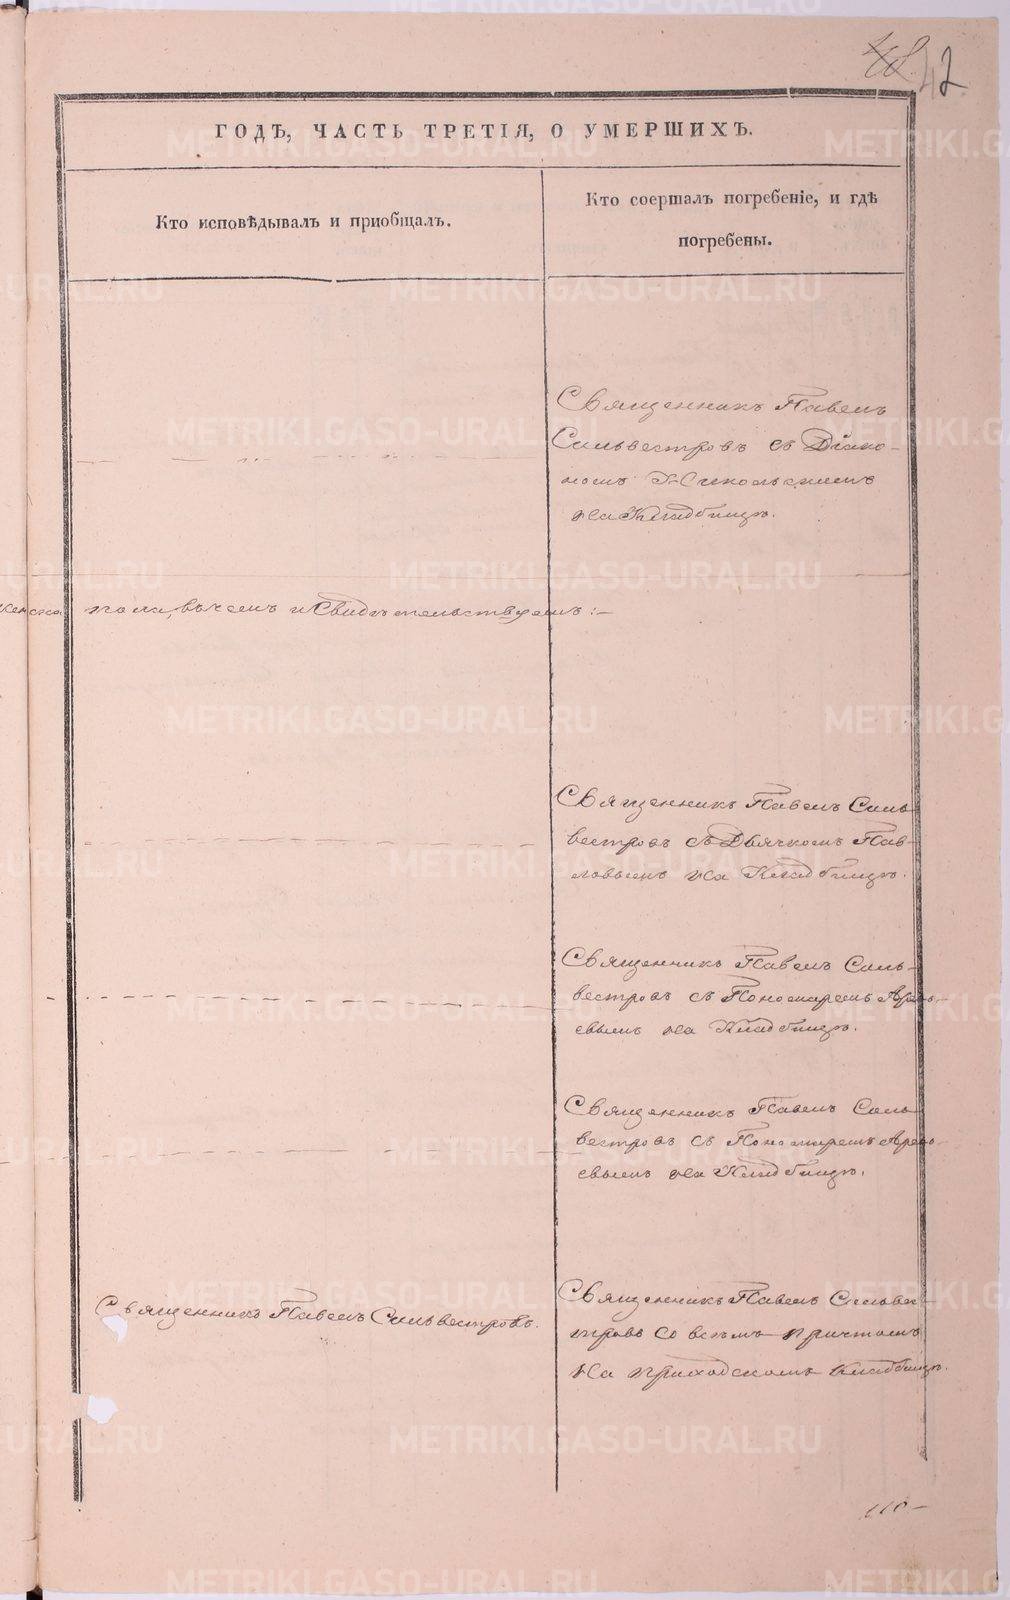 42
ГОДЪ, ЧАСТЬ ТРЕТІЯ, О УМЕРШИХЪ.
Кто исповѣдывалъ и приобщалъ.
Кто соершалъ погребеніе, и гдѣ
погребены.
Священникъ Павелъ
Сильвестровъ съ Діако-
номъ Никольскимъ
на Кладбищѣ.
пола, въ чемъ и Свидѣтельствуемъ:-
Священникъ Павелъ Силь-
вестровъ съ Дьячкомъ Пав-
ловымъ на Кладбищѣ.
Священникъ Павелъ Силь-
вестровъ съ Пономаремъ Арефь-
евымъ на Кладбищѣ.
Священникъ Павелъ Силь-
вестровъ съ Пономаремъ Арефь-
евымъ на Кладбищѣ.
Священникъ Павелъ Сильвестровъ.
Священникъ Павелъ Сильвес-
тровъ со всѣмъ причтомъ
на приходскомъ кладбищѣ.
METRIKI.GASO-URAL.RU